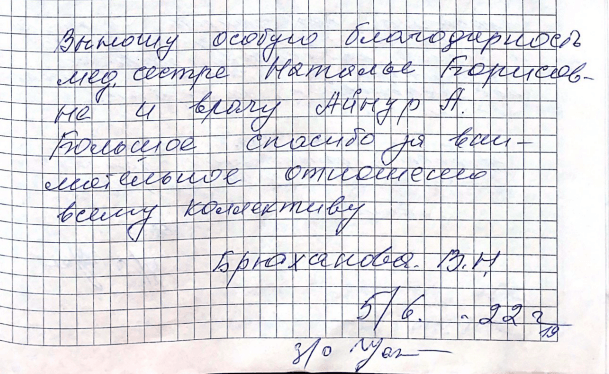 Выношу особую благодарность
мед. сестре Наталье Борисов-
не и врачу Айнур А.
Большое спасибо за вни-
мательное отношение
всему коллективу
Брюханова. В.Н.
5/6. -22 г
19
з/о